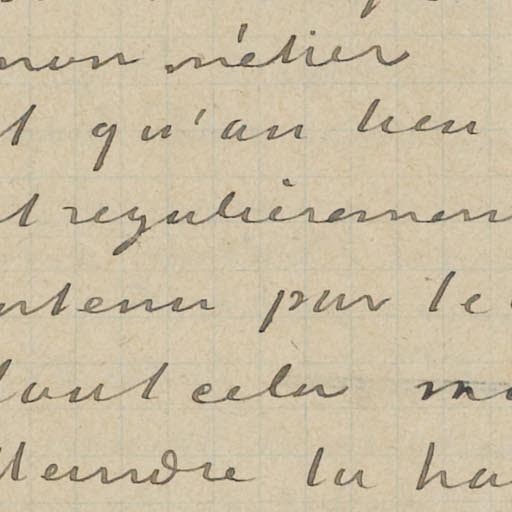 mon métier
t qu'au lieu
t regulièremen
ntenu par le
tout cela m
tteindre la ha